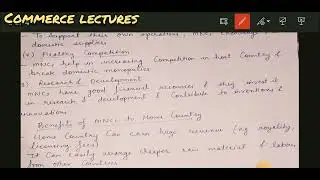 Commerce lectures
→ To Support their own operations, MNCs encourage
domestic suppliers
(4) Healthy Competition
MNCs help in increasing Competition in host Country &
break domestic monopolies
Research & Development
MNCs have good financial resources & they invest it
in research & development & Contribute to inventions &
innovations
Benefits of MNCs to Home Country
Home Country Can earn huge revenue (eg royality,
licensing fees)
It Can easily arrange cheaper raw material & labour
from other Countries